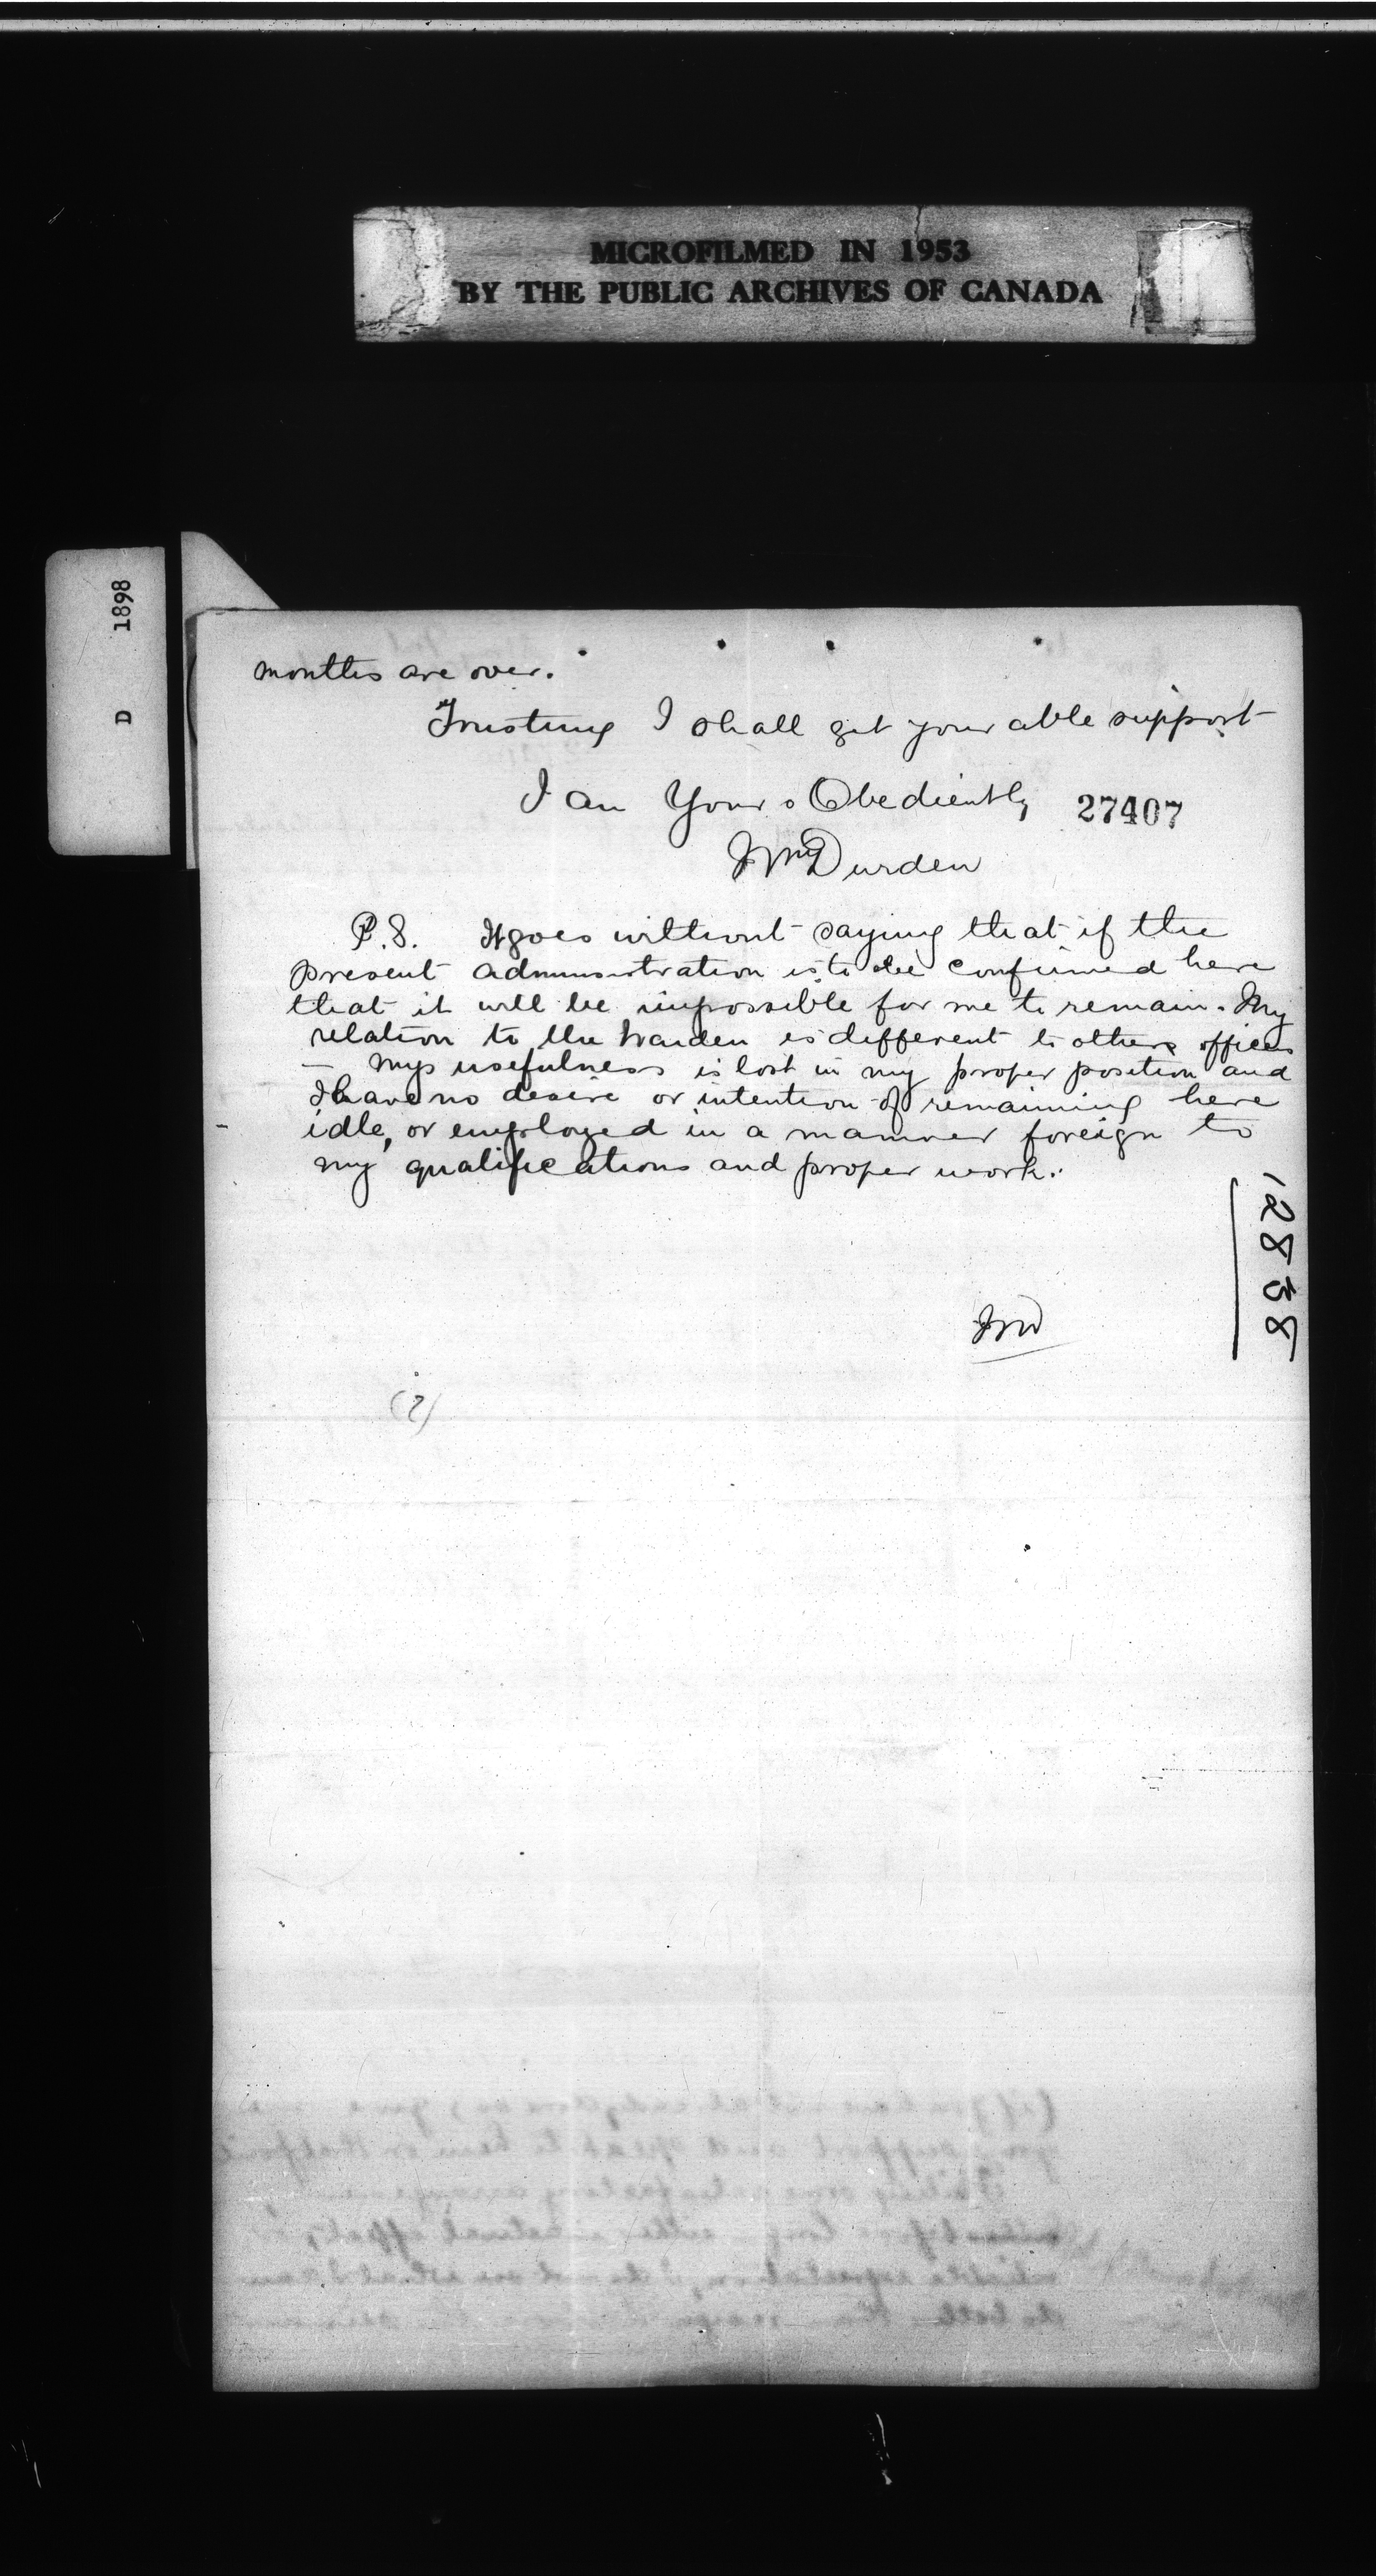 MICROFILMED IN 1953
BY THE PUBLIC ARCHIVES OF CANADA
D 1898
months are over.
Trusting I shall get your able support
I am Yours Obediently
27407
Durden
P.S. It goes without saying that if the
present administration is to be confirmed here
that it will be impossible for me to remain. My
relation to the Warden is different to others officers
– my usefulness is lost in my proper position and
I have no desire or intention of remaining here
idle, or employed in a manner foreign to
my qualifications and proper work.
12838
(2)